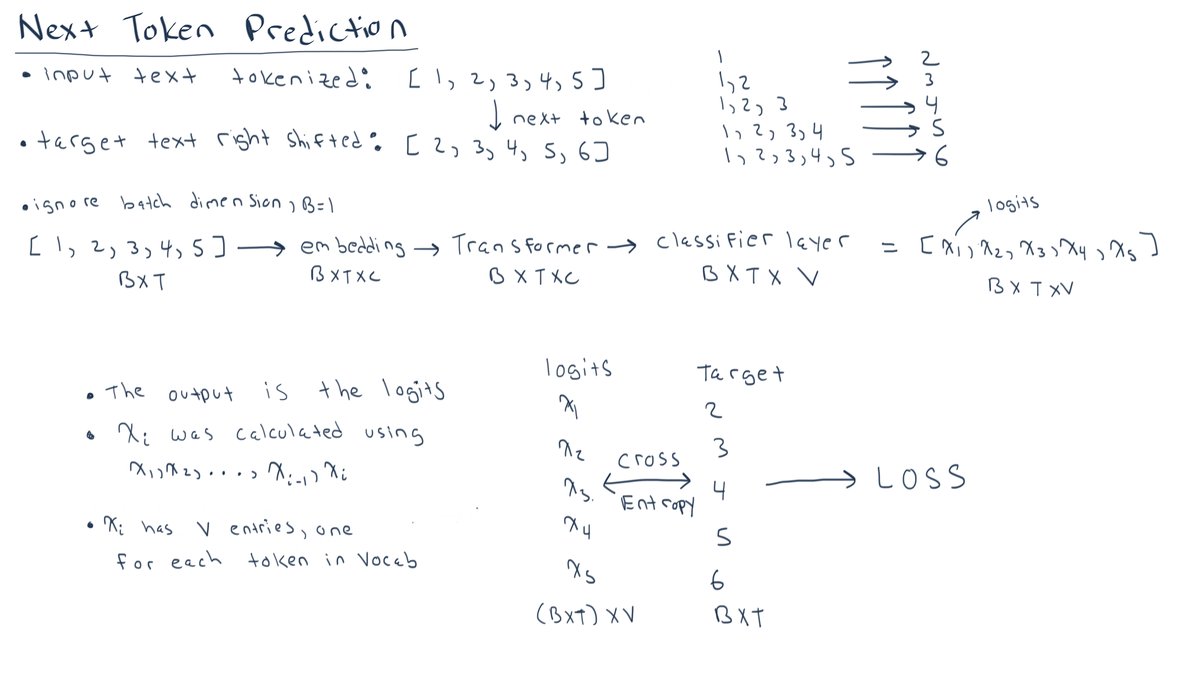 Next Token Prediction
• input text tokenized: [ 1, 2, 3, 4, 5 ]
↓ next token
• target text right shifted: [ 2, 3, 4, 5, 6 ]
1 → 2
1, 2 → 3
1, 2, 3 → 4
1, 2, 3, 4 → 5
1, 2, 3, 4, 5 → 6
• ignore batch dimension, B=1
logits
[ 1, 2, 3, 4, 5 ] → embedding → Transformer → classifier layer = [ x₁, x₂, x₃, x₄, x₅ ]
B X T B X T X C B X T X C B X T X V B X T X V
• The output is the logits
• xᵢ was calculated using
x₁, x₂, ..., xᵢ₋₁, xᵢ
• xᵢ has V entries, one
for each token in Vocab
logits Target
x₁ 2
x₂ 3
x₃ 4
x₄ 5
x₅ 6
(B X T) X V B X T
Cross
Entropy
→ LOSS